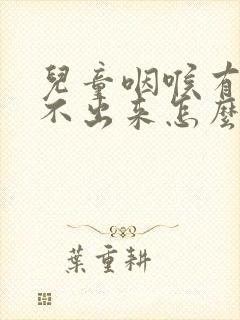 兒童咽喉有
不出来怎麼
葉重耕